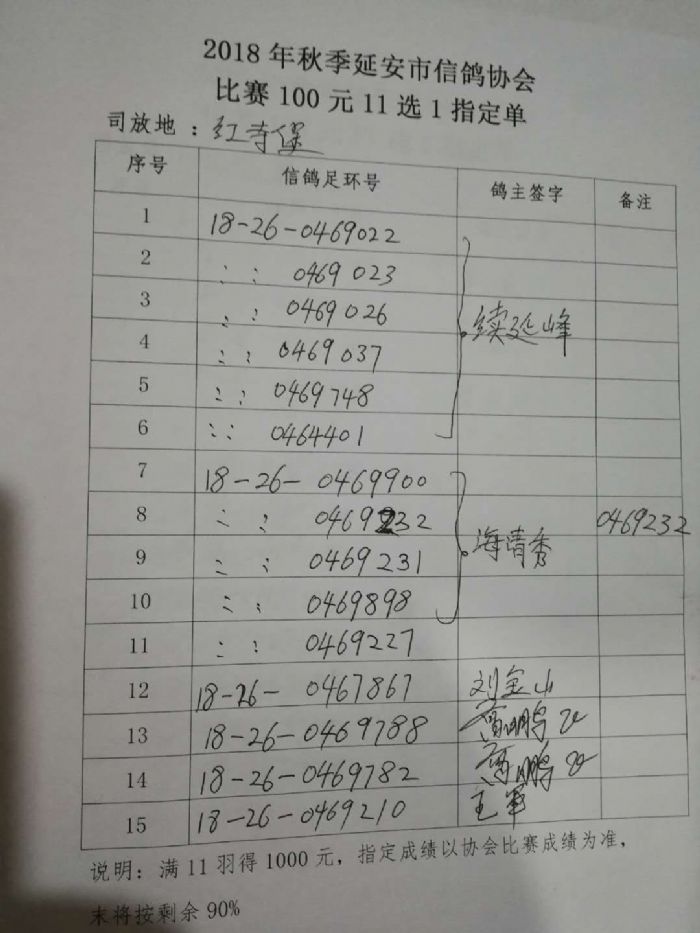 2018 年秋季延安市信鸽协会
比赛 100 元 11 选 1 指定单
司放地 : 红寺堡
序号 信鸽足环号 鸽主签字 备注
1 18-26-0469022
2 : : 0469 023
3 : : 0469 026
续延峰
4 : : 0469037
5 : : 0469748
6 : : 0464401
7 18-26-0469900
8 : : 0469232 0469232
9 : : 0469231 海清秀
10 : : 0469898
11 : : 0469227
12 18-26- 0467867 刘宝山
13 18-26-0469788 鹏飞
14 18-26-0469782 鹏飞
15 18-26-0469210 王军
说明: 满 11 羽得 1000 元, 指定成绩以协会比赛成绩为准,
末将按剩余 90%